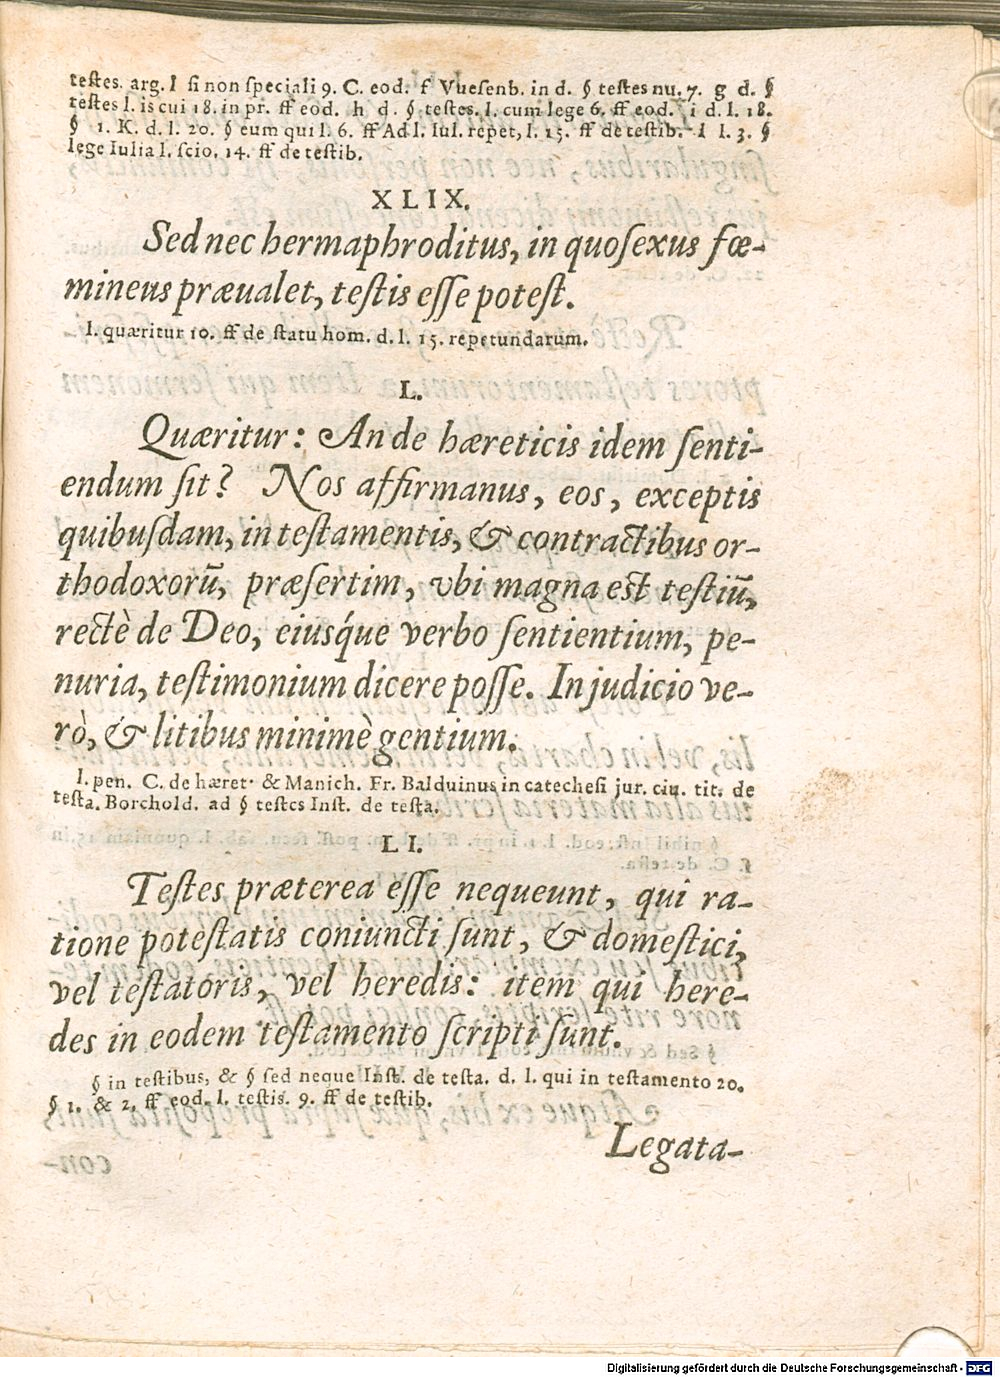 teſtes. arg. l ſi non ſpeciali 9. C. eod. f Vueſenb. in d. § teſtes nu. 7. g d. §
teſtes l. is cui 18. in pr. ff eod. h d. § teſtes. l. cum lege 6. ff eod. i d. l. 18.
§ 1. K. d. l. 20. § eum qui l. 6. ff Ad l. Iul. repet, l. 15. ff de teſtib. l l. 3. §
lege Iulia l. ſcio. 14. ff de teſtib.
XLIX.
Sed nec hermaphroditus, in quo ſexus fœ-
mineus præualet, teſtis eſſe poteſt.
l. quæritur 10. ff de ſtatu hom. d. l. 15. repetundarum.
L.
Quæritur: An de hæreticis idem ſenti-
endum ſit? Nos affirmanus, eos, exceptis
quibuſdam, in teſtamentis, & contractibus or-
thodoxorũ, præſertim, vbi magna eſt teſtiũ,
rectè de Deo, eiusq́ue verbo ſentientium, pe-
nuria, teſtimonium dicere poſſe. In judicio ve-
rò, & litibus minimè gentium.
l. pen. C. de hæret. & Manich. Fr. Balduinus in catecheſi jur. ciu. tit. de
teſta. Borchold. ad § teſtes Inſt. de teſta.
LI.
Teſtes præterea eſſe nequeunt, qui ra-
tione poteſtatis coniuncti ſunt, & domeſtici,
vel teſtatoris, vel heredis: item qui here-
des in eodem teſtamento ſcripti ſunt.
§ in teſtibus, & § ſed neque Inſt. de teſta. d. l. qui in teſtamento 20.
§ 1. & 2. ff eod. l. teſtis. 9. ff de teſtib.
Legata-
Digitalisierung gefördert durch die Deutsche Forschungsgemeinschaft - DFG